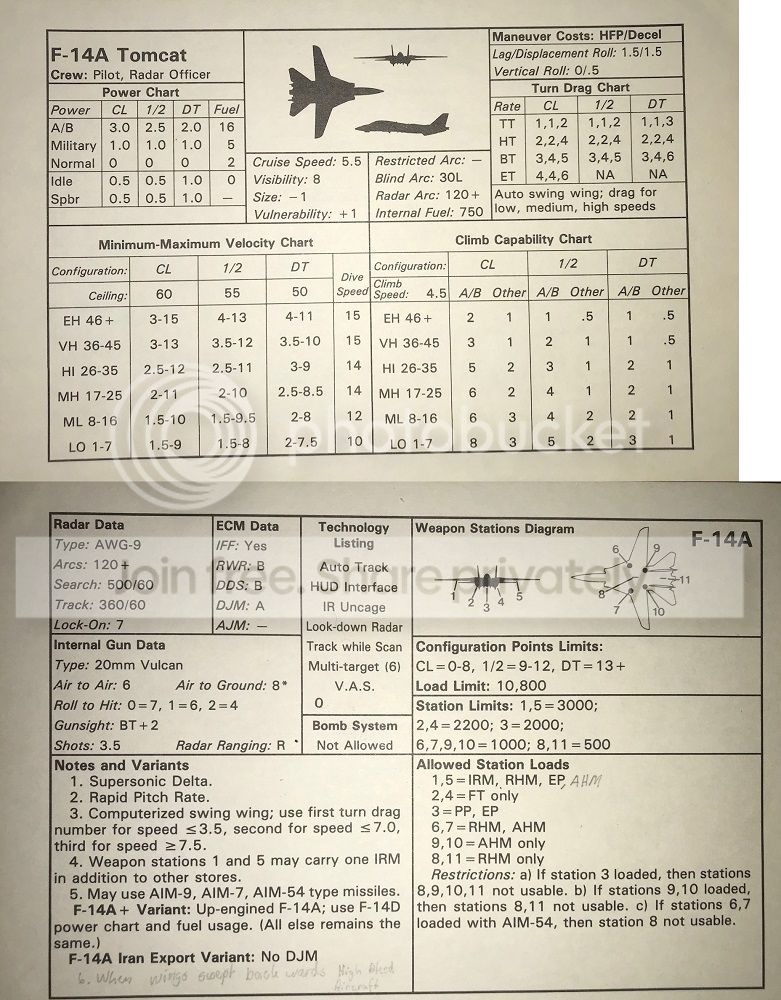 F-14A Tomcat
Crew: Pilot, Radar Officer
Power Chart
Power CL 1/2 DT Fuel
A/B 3.0 2.5 2.0 16
Military 1.0 1.0 1.0 5
Normal 0 0 0 2
Idle 0.5 0.5 1.0 0
Spbr 0.5 0.5 1.0 —
Cruise Speed: 5.5
Visibility: 8
Size: −1
Vulnerability: +1
Restricted Arc: —
Blind Arc: 30L
Radar Arc: 120+
Internal Fuel: 750
Maneuver Costs: HFP/Decel
Lag/Displacement Roll: 1.5/1.5
Vertical Roll: 0/.5
Turn Drag Chart
Rate CL 1/2 DT
TT 1,1,2 1,1,2 1,1,3
HT 2,2,4 2,2,4 2,2,4
BT 3,4,5 3,4,5 3,4,6
ET 4,4,6 NA NA
Auto swing wing; drag for
low, medium, high speeds
Minimum-Maximum Velocity Chart
Configuration: CL 1/2 DT Dive Speed
Ceiling: 60 55 50
EH 46+ 3-15 4-13 4-11 15
VH 36-45 3-13 3.5-12 3.5-10 15
HI 26-35 2.5-12 2.5-11 3-9 14
MH 17-25 2-11 2-10 2.5-8.5 14
ML 8-16 1.5-10 1.5-9.5 2-8 12
LO 1-7 1.5-9 1.5-8 2-7.5 10
Climb Capability Chart
Configuration: CL 1/2 DT
Climb Speed: 4.5 A/B Other A/B Other A/B Other
EH 46+ 2 1 1 .5 1 .5
VH 36-45 3 1 2 1 1 .5
HI 26-35 5 2 3 1 2 1
MH 17-25 6 2 4 1 2 1
ML 8-16 6 3 4 2 2 1
LO 1-7 8 3 5 2 3 1
photobucket
Radar Data
Type: AWG-9
Arcs: 120+
Search: 500/60
Track: 360/60
Lock-On: 7
ECM Data
IFF: Yes
RWR: B
DDS: B
DJM: A
AJM: —
Technology
Listing
Auto Track
HUD Interface
IR Uncage
Look-down Radar
Track while Scan
Multi-target (6)
V.A.S.
O
Bomb System
Not Allowed
Weapon Stations Diagram
F-14A
1 2 3 4 5
6 9
8 11
7 10
Join free. Share privately
Internal Gun Data
Type: 20mm Vulcan
Air to Air: 6 Air to Ground: 8*
Roll to Hit: 0=7, 1=6, 2=4
Gunsight: BT+2
Shots: 3.5 Radar Ranging: R
Configuration Points Limits:
CL=0-8, 1/2=9-12, DT=13+
Load Limit: 10,800
Station Limits: 1,5=3000;
2,4=2200; 3=2000;
6,7,9,10=1000; 8,11=500
Notes and Variants
1. Supersonic Delta.
2. Rapid Pitch Rate.
3. Computerized swing wing; use first turn drag
number for speed ≤3.5, second for speed ≤7.0,
third for speed ≥ 7.5.
4. Weapon stations 1 and 5 may carry one IRM
in addition to other stores.
5. May use AIM-9, AIM-7, AIM-54 type missiles.
F-14A+ Variant: Up-engined F-14A; use F-14D
power chart and fuel usage. (All else remains the
same.)
F-14A Iran Export Variant: No DJM
6. When wings swept backwards High Bleed
Aircraft
Allowed Station Loads
1,5=IRM, RHM, EP, AHM
2,4=FT only
3=PP, EP
6,7=RHM, AHM
9,10=AHM only
8,11=RHM only
Restrictions: a) If station 3 loaded, then stations
8,9,10,11 not usable. b) If stations 9,10 loaded,
then stations 8,11 not usable. c) If stations 6,7
loaded with AIM-54, then station 8 not usable.